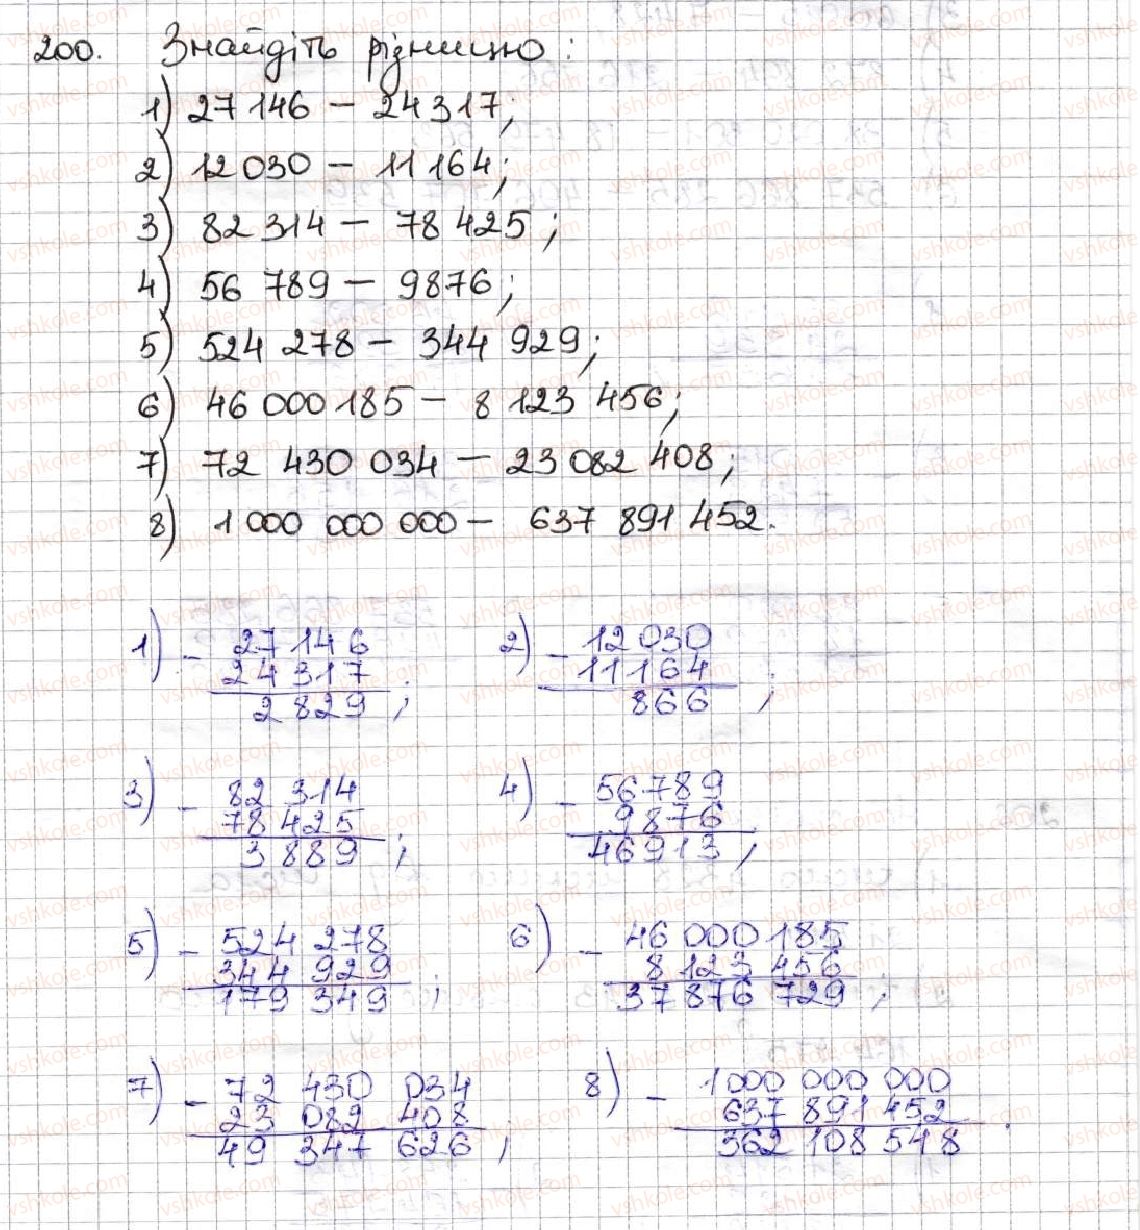 200. Знайдіть різницю:
1) 27 146 − 24 317;
2) 12 030 − 11 164;
3) 82 314 − 78 425;
4) 56 789 − 9876;
5) 524 278 − 344 929;
6) 46 000 185 − 8 123 456;
7) 72 430 034 − 23 082 408;
8) 1 000 000 000 − 637 891 452.
1) − 27 146
24 317
2 829;
2) − 12 030
11 164
866;
3) − 82 314
78 425
3 889;
4) − 56789
9876
46913;
5) − 524 278
344 929
179 349;
6) − 46 000 185
8 123 456
37 876 729;
7) − 72 430 034
23 082 408
49 347 626;
8) − 1 000 000 000
637 891 452
362 108 548.
vshkole.com